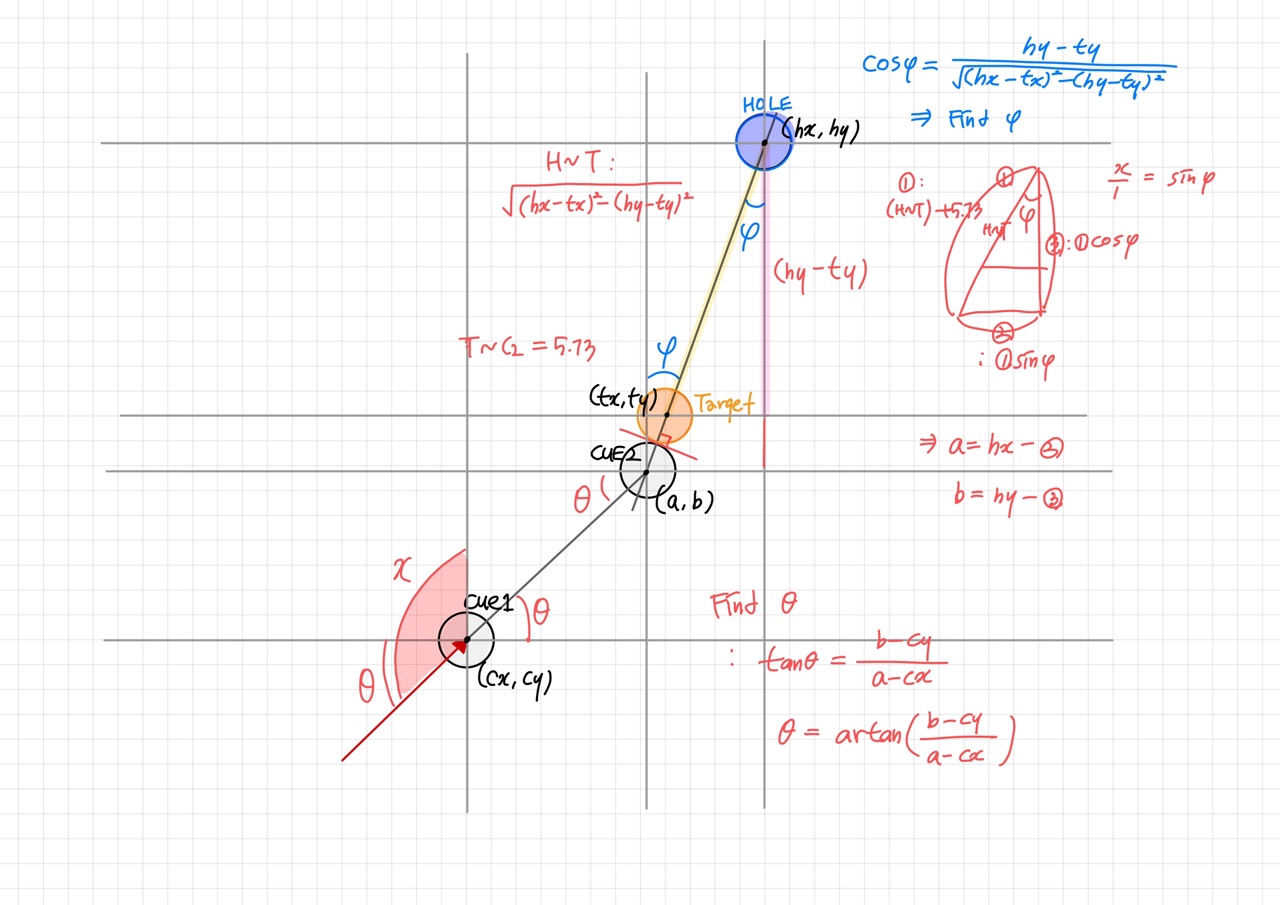 cosφ = (hy - ty) / √(hx - tx)² - (hy - ty)²
⇒ Find φ
HOLE
(hx, hy)
H~T :
√(hx - tx)² - (hy - ty)²
φ
(hy - ty)
①:
(H~T) + 5.73
①
H~T
φ
③: ①cosφ
②
: ①sinφ
x/1 = sinφ
T~C2 = 5.73
φ
(tx, ty)
Target
CUE2
θ
(a, b)
⇒ a = hx - ②
b = hy - ③
x
cue1
θ
(cx, cy)
θ
Find θ
: tanθ = (b - cy) / (a - cx)
θ = artan((b - cy) / (a - cx))